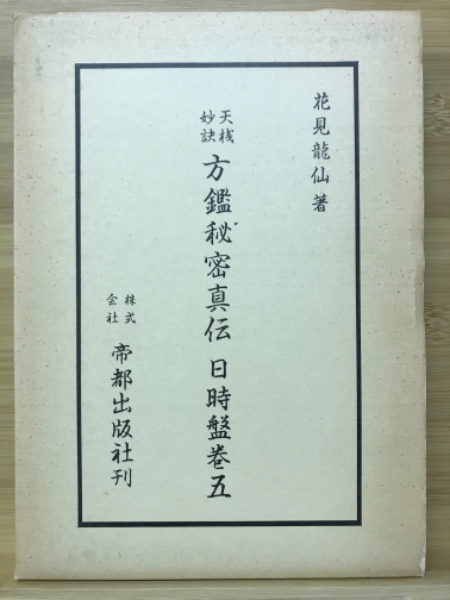 花見龍仙著
天機
妙訣
方鑑秘密真伝 日時盤巻五
株式
会社
帝都出版社刊